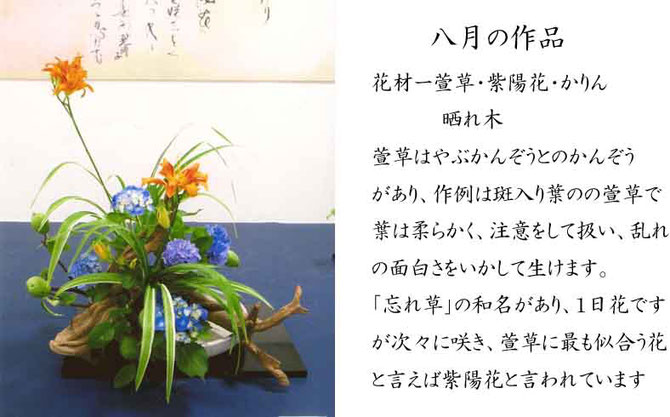 八月の作品
花材ー萱草・紫陽花・かりん
晒れ木
萱草はやぶかんぞうとのかんぞう
があり、作例は斑入り葉のの萱草で
葉は柔らかく、注意をして扱い、乱れ
の面白さをいかして生けます。
「忘れ草」の和名があり、1日花です
が次々に咲き、萱草に最も似合う花
と言えば紫陽花と言われています